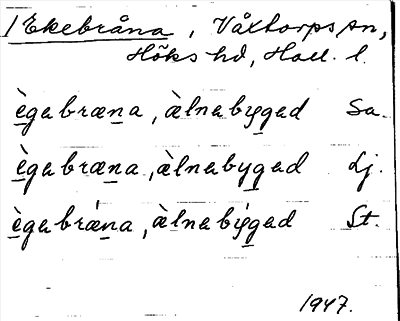 1 Ekebråna, Våxtorps sn,
Höks hd, Hall. l.
ègabræna, àlnabygad Sa.
ègabræna, àlnabygad Lj.
ègabrǽna, àlnabýgad St.
1947.